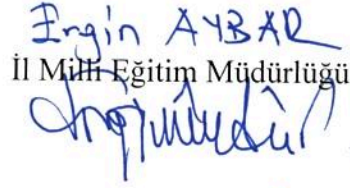 Engin AYBAR
İl Milli Eğitim Müdürlüğü